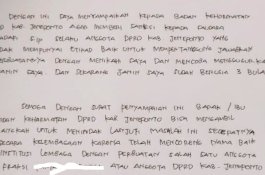 DENGAN INI SAYA MENYAMPAIKAN KEPADA BADAN KEHORMATAN
DPRD KAB. JENEPONTO AGAR MEMBERI SANKSI KEPADA SAUDARA
SELAKU ANGGOTA DPRD KAB. JENEPONTO YANG
MEMPUNYAI ETIKAD BAIK UNTUK MEMPERTANGGUNG JAWABKAN
PERBUATANNYA DENGAN MENIKAHI SAYA DAN MENCOBA MENGGUGURKAN
JANIN SAYA DAN SEKARANG JANIN SAYA SUDAH BERUSIA 3 BULAN
SEMOGA DENGAN SURAT PENYAMPAIAN INI BAPAK / IBU
DAN KEHORMATAN DPRD KAB. JENEPONTO BISA MENGAMBIL
UNTUK MENINDAK LANJUTI MASALAH INI SECEPATNYA
KELEMBAGAAN KARENA TELAH MENCORENG NAMA BAIK
INSTITUSI LEMBAGA DENGAN PERBUATAN SALAH SATU ANGGOTA
FRAKSI ATAU ANGGOTA DPRD KAB. JENEPONTO